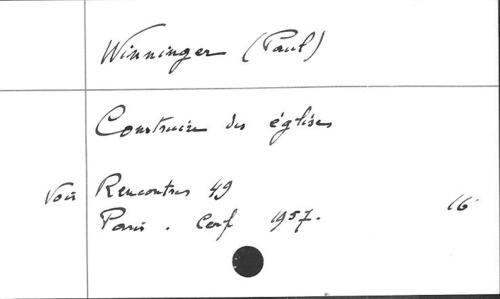 Winninger (Paul)
Construire des églises
Voir Rencontres 49
Paris. Cerf 1957. 16